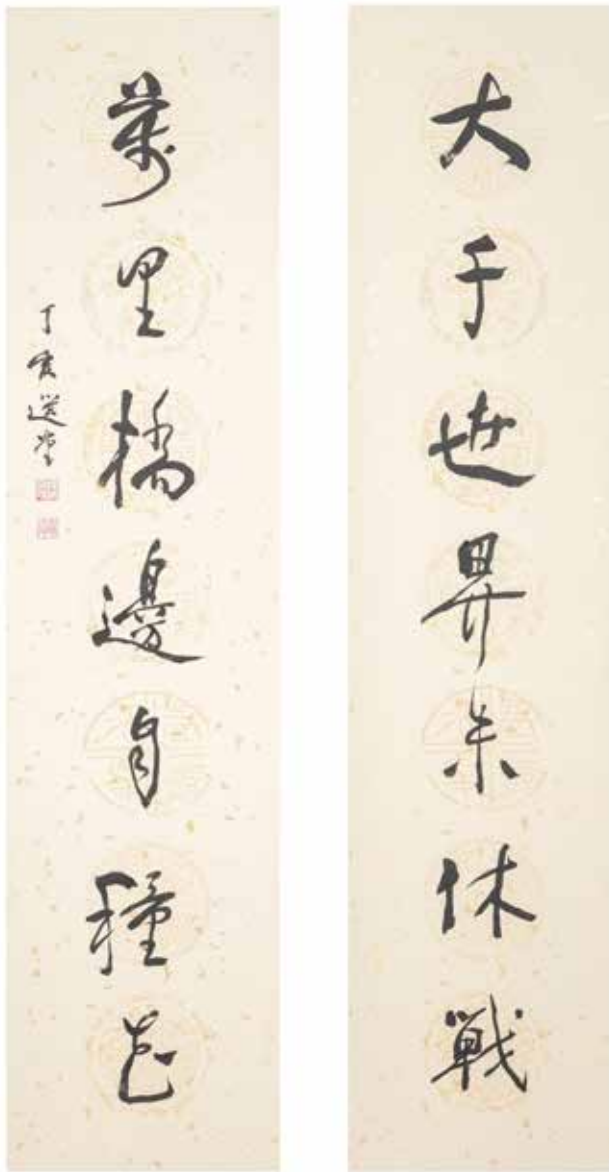 大千世界未休戰
萬里橋邊自種花
丁亥選堂